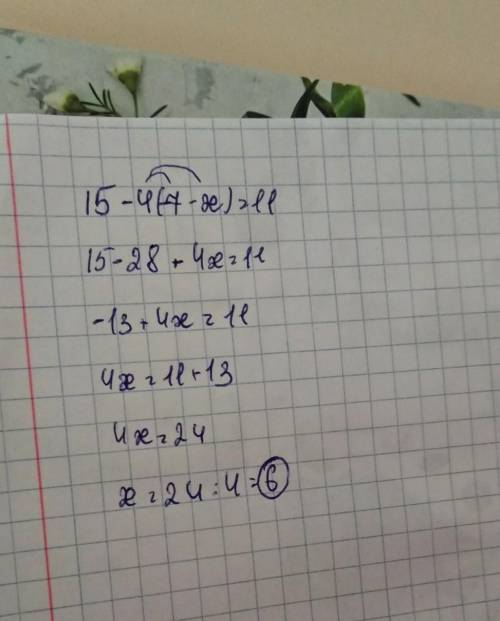 15 - 4(7 - x) = 11
15 - 28 + 4x = 11
-13 + 4x = 11
4x = 11 + 13
4x = 24
x = 24 : 4 = 6